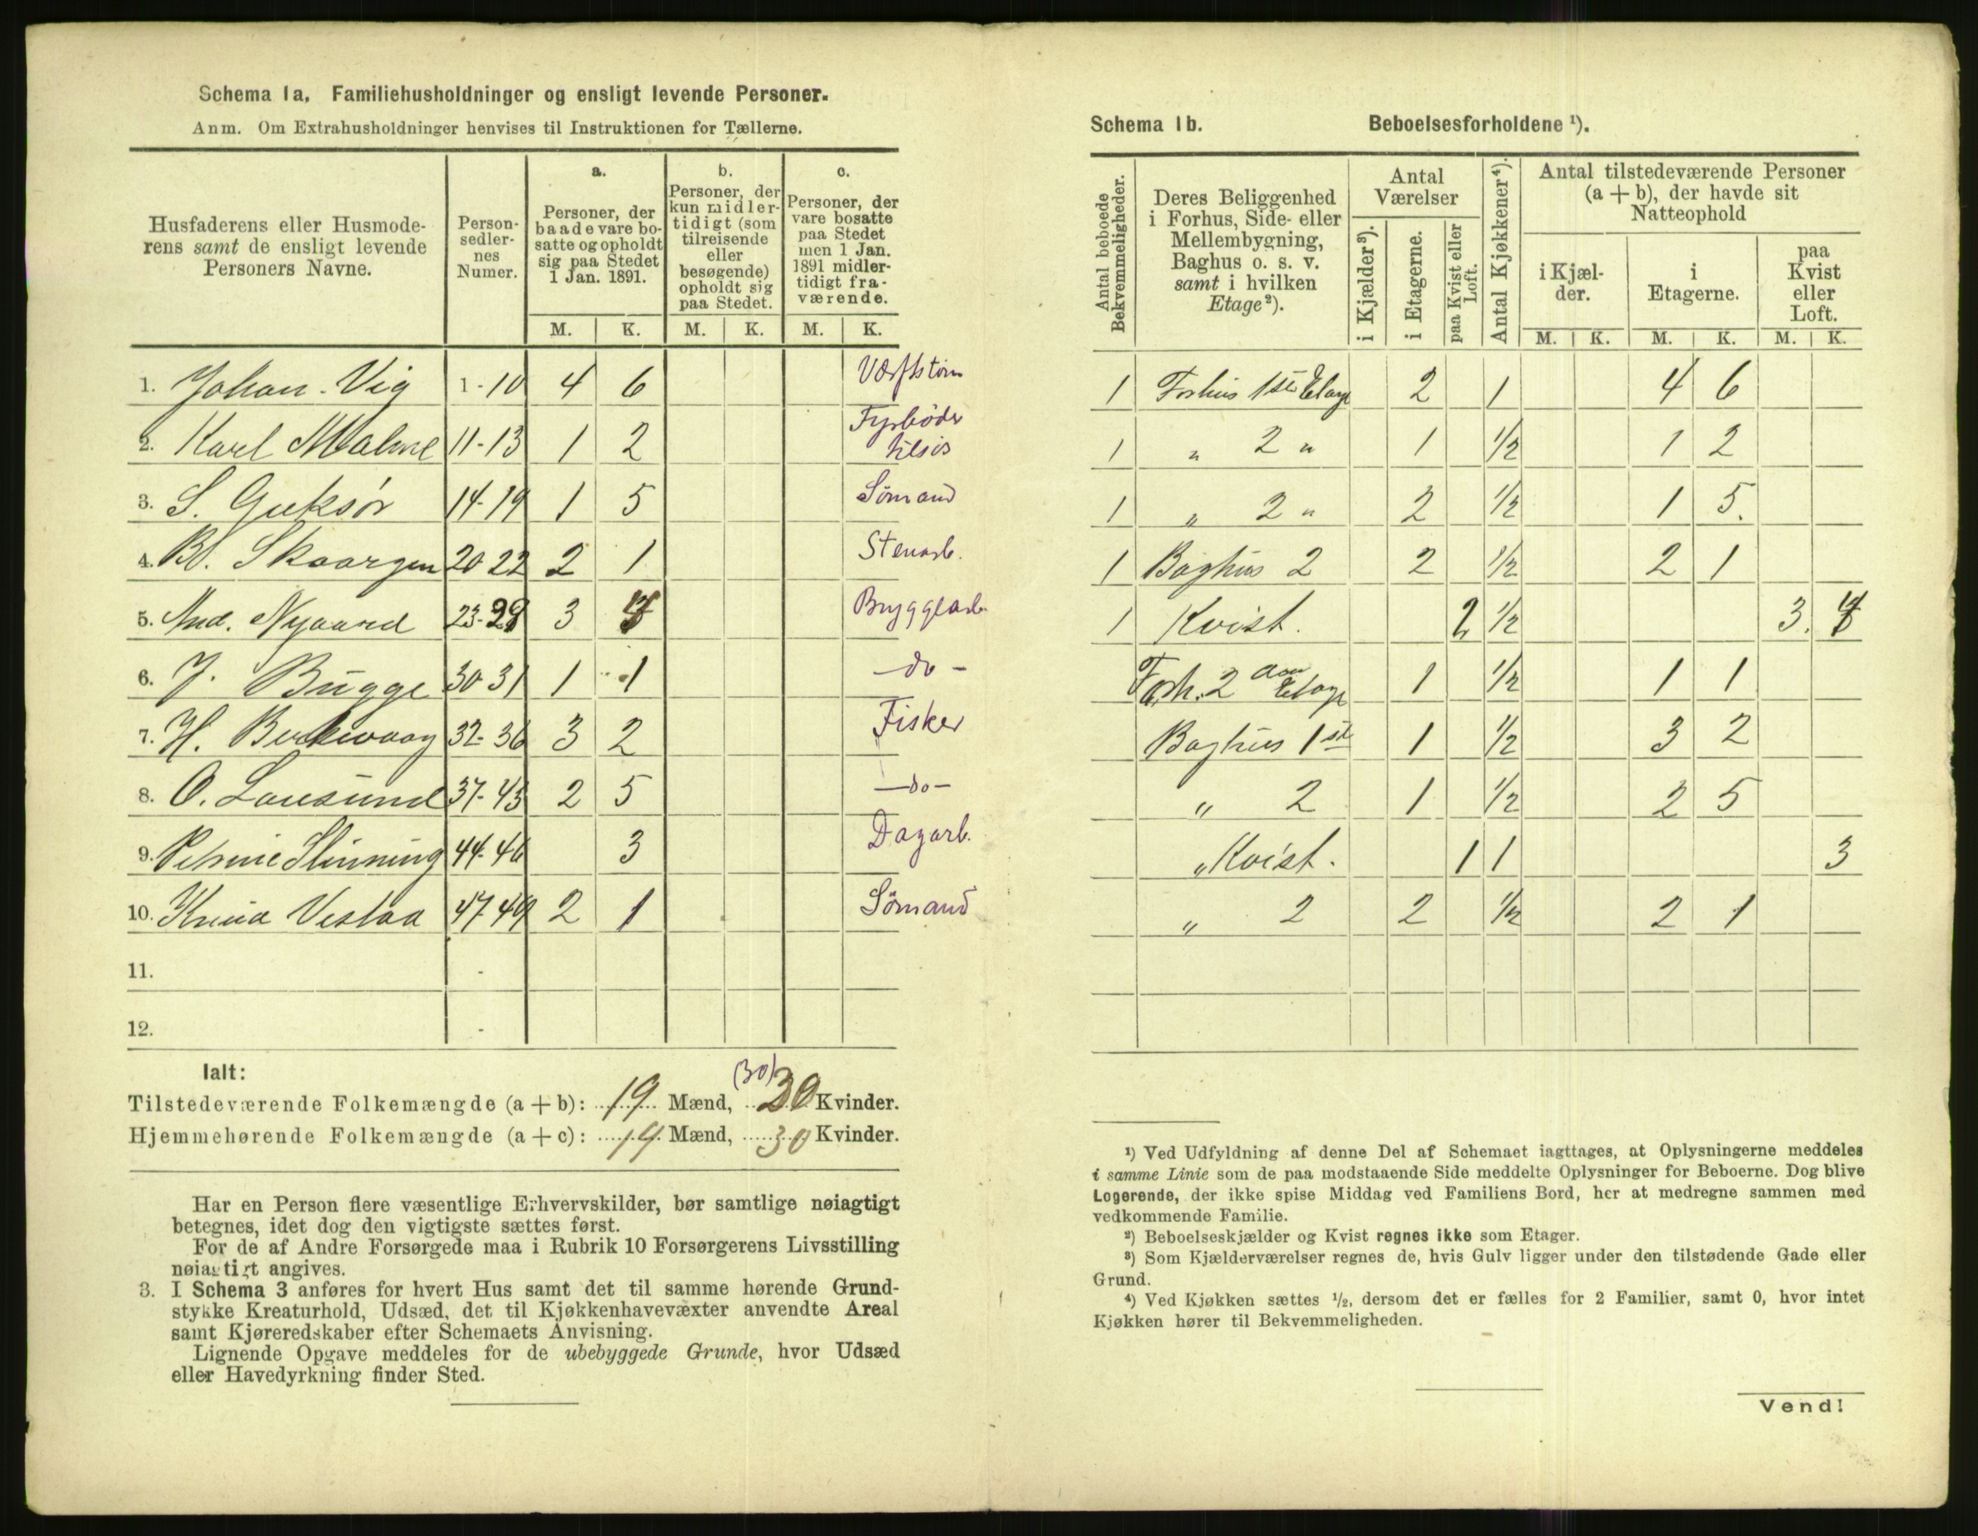 Schema 1a. Familiehusholdninger og ensligt levende Personer.
Anm. Om Extrahusholdninger henvises til Instruktionen for Tællerne.
Husfaderens eller Husmode-
rens samt de ensligt levende
Personers Navne.
Person-
sedler-
nes
Numer.
a.
Personer, der
baade vare bo-
satte og opholdt
sig paa Stedet
1 Jan. 1891.
b.
Personer, der
kun midler-
tidigt (som
tilreisende
eller
besøgende)
opholdt sig
paa Stedet.
c.
Personer, der
vare bosatte
paa Stedet
men 1 Jan.
1891 midler-
tidigt fra-
værende.
M. K. M. K. M. K.
1. Johan Vig 1-10 4 6 Værftstøm
2. Karl Malme 11-13 1 2 Fyrbøder tilsøs
3. S. Gjeksør 14-19 1 5 Sømand
4. Bl. Skaargen 20-22 2 1 Stenarb.
5. And. Nygaard 23-29 3 4 Bryggearb.
6. J. Bugge 30-31 1 1 -do-
7. H. Berkvaag 32-36 3 2 Fisker
8. O. Lausund 37-43 2 5 -do-
9. Petrine Slinning 44-46 3 Dagarb.
10. Knud Vestaa 47-49 2 1 Sømand
11. -
12. -
Ialt:
(30)
Tilstedeværende Folkemængde (a + b): 19 Mænd, 30 Kvinder.
Hjemmehørende Folkemængde (a + c): 19 Mænd, 30 Kvinder.
Har en Person flere væsentlige Erhvervskilder, bør samtlige nøiagtigt
betegnes, idet dog den vigtigste sættes først.
For de af Andre Forsørgede maa i Rubrik 10 Forsørgerens Livsstilling
nøiagtigt angives.
3. I Schema 3 anføres for hvert Hus samt det til samme hørende Grund-
stykke Kreaturhold, Udsæd, det til Kjøkkenhavevæxter anvendte Areal
samt Kjøreredskaber efter Schemaets Anvisning.
Lignende Opgave meddeles for de ubebyggede Grunde, hvor Udsæd
eller Havedyrkning finder Sted.
Schema 1b. Beboelsesforholdene ¹).
Antal beboede
Bekvemmeligheder.
Deres Beliggenhed
i Forhus, Side- eller
Mellembygning,
Baghus o. s. v.
samt i hvilken
Etage²).
Antal
Værelser
i Kjælder³).
i Etagerne.
paa Kvist eller
Loft.
Antal Kjøkkener⁴).
Antal tilstedeværende Personer
(a + b), der havde sit
Natteophold
i Kjæl-
der.
i
Etagerne.
paa
Kvist
eller
Loft.
M. K. M. K. M. K.
1 Forhus 1ste Etage 2 1 4 6
1 " 2 " 1 1/2 1 2
1 " 2 " 2 1/2 1 5.
1 Baghus 2 2 1/2 2 1
1 Kvist. 2 1/2 3. 4
Forh. 2 den Etage 1 1/2 1 1
Baghus 1st 1 1/2 3 2
" 2 1 1/2 2 5
" Kvist. 1 1 3
" 2 2 1/2 2 1
¹) Ved Udfyldning af denne Del af Schemaet iagttages, at Oplysningerne meddeles
i samme Linie som de paa modstaaende Side meddelte Oplysninger for Beboerne. Dog blive
Logerende, der ikke spise Middag ved Familiens Bord, her at medregne sammen med
vedkommende Familie.
²) Beboelseskjælder og Kvist regnes ikke som Etager.
³) Som Kjælderværelser regnes de, hvis Gulv ligger under den tilstødende Gade eller
Grund.
⁴) Ved Kjøkken sættes ½, dersom det er fælles for 2 Familier, samt 0, hvor intet
Kjøkken hører til Bekvemmeligheden.
Vend!